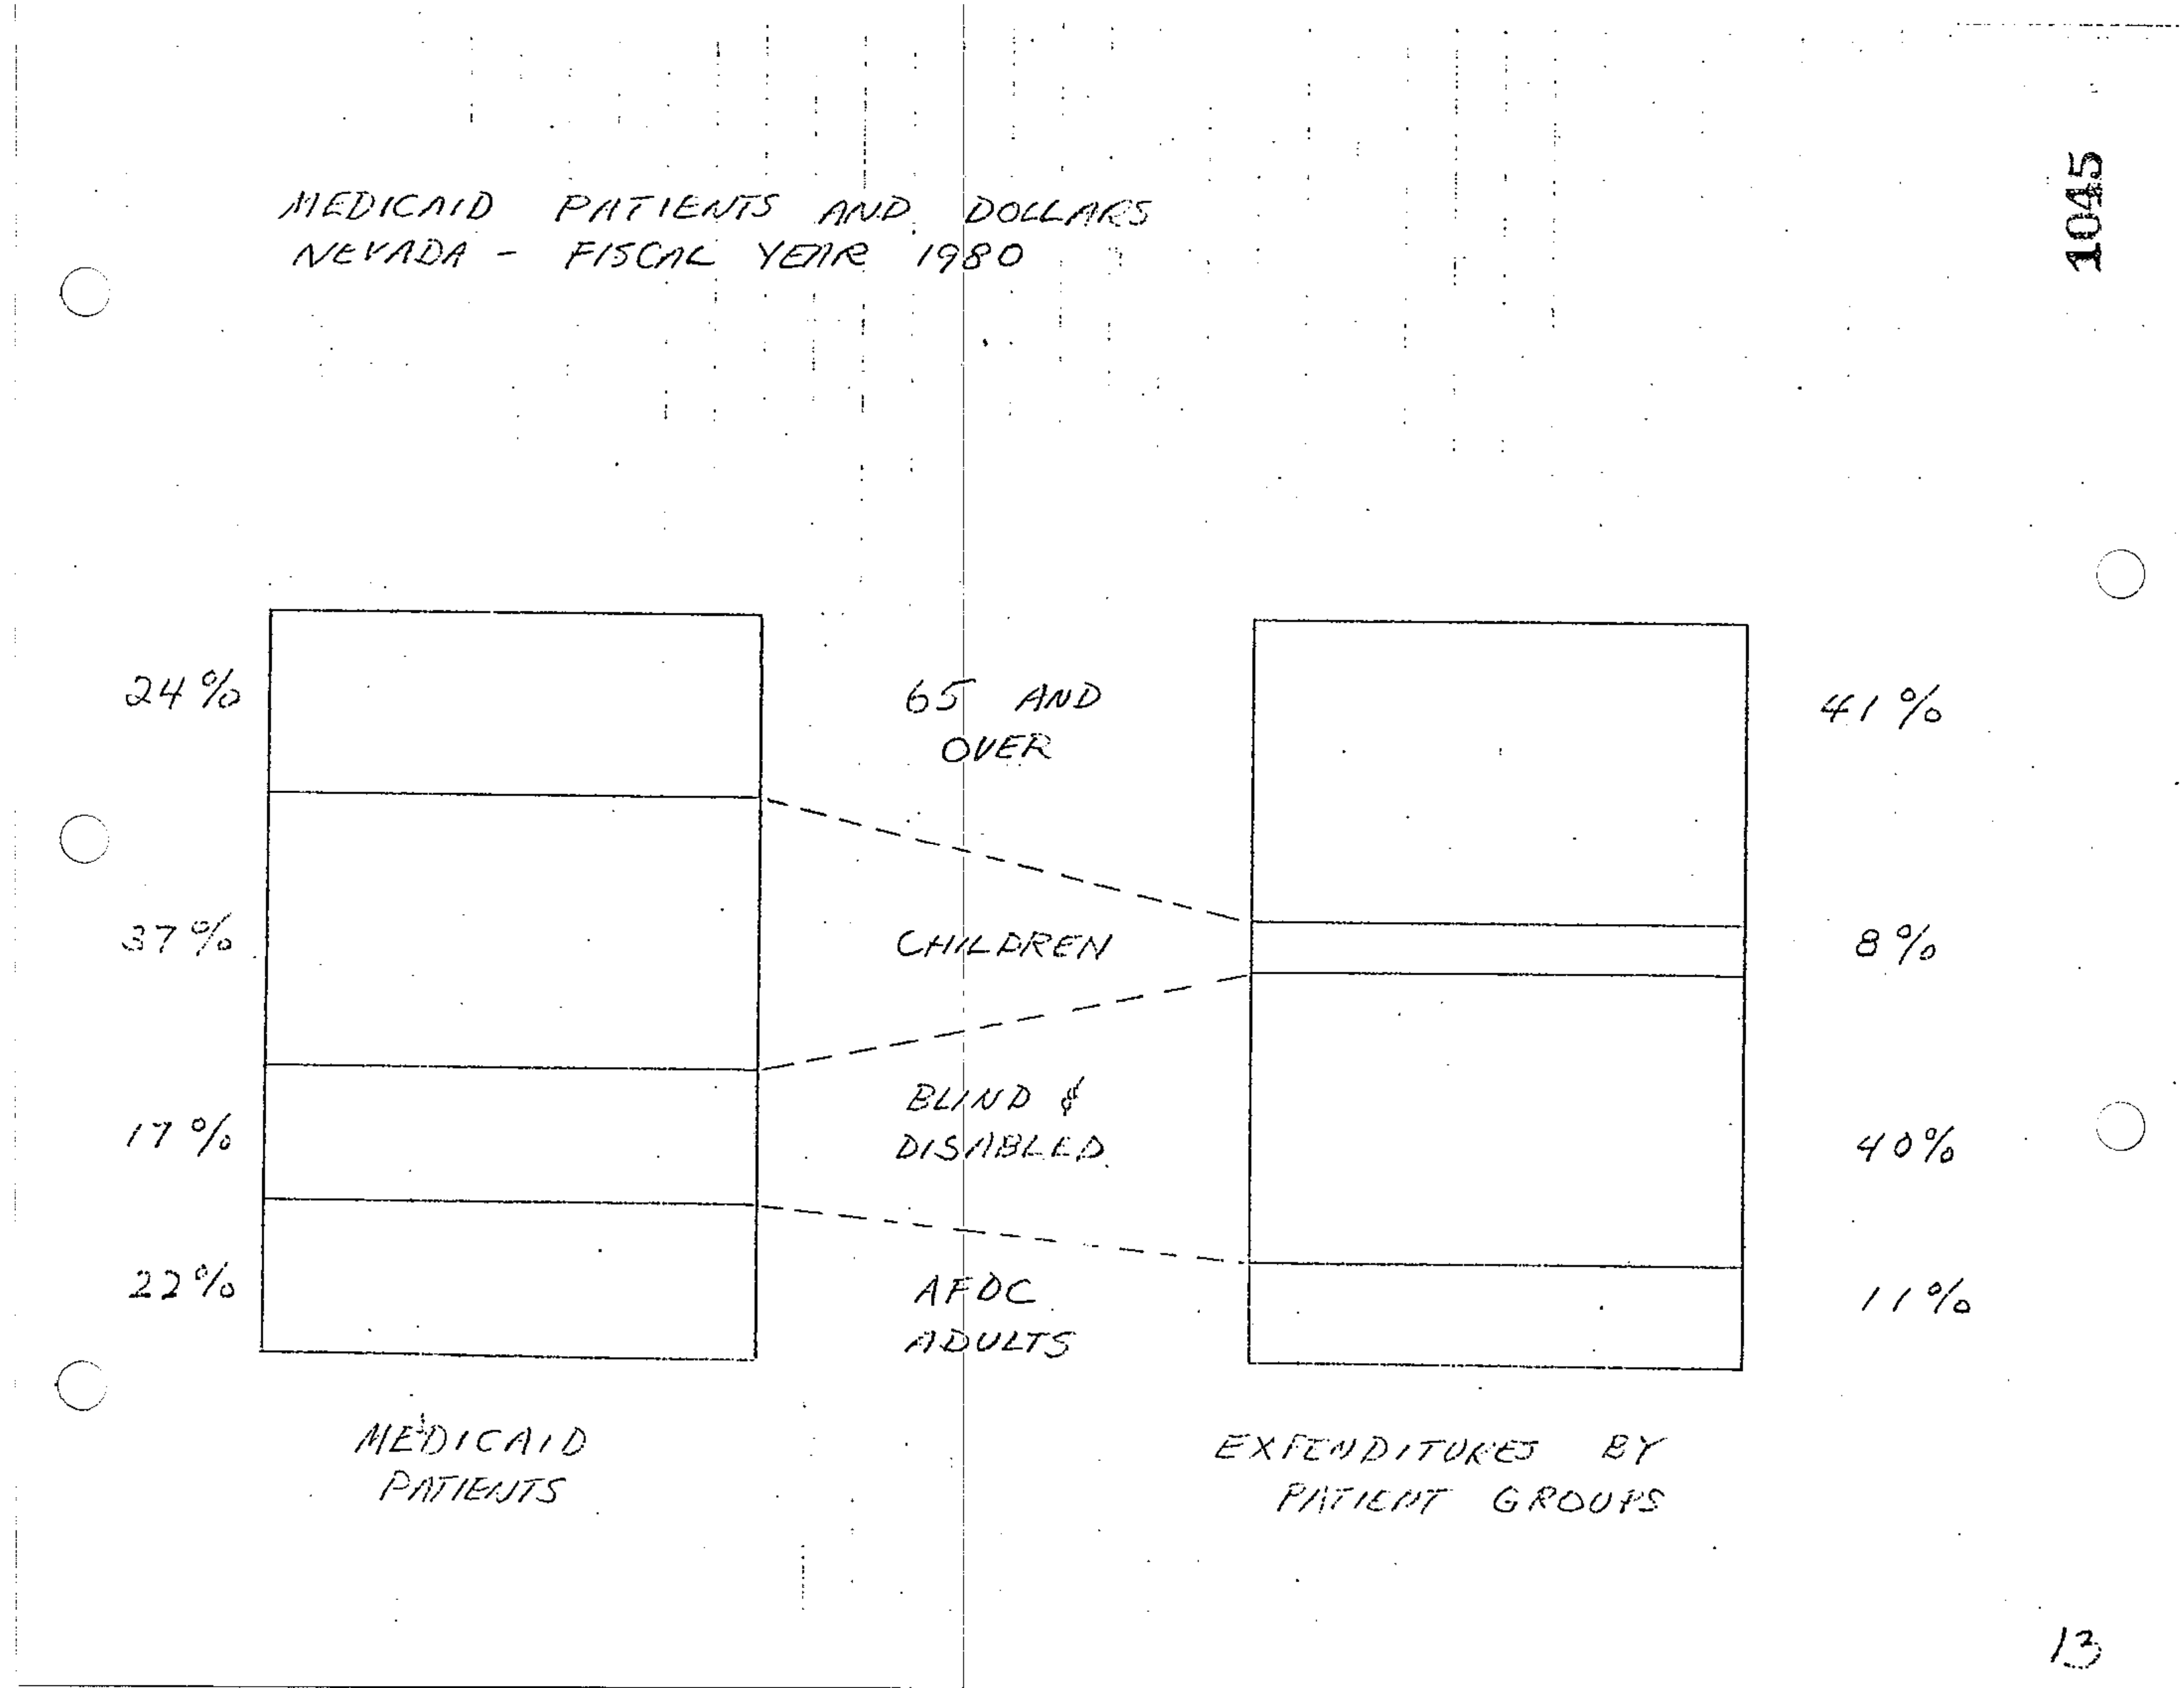 1045
MEDICAID PATIENTS AND DOLLARS
NEVADA - FISCAL YEAR 1980
24%
65 AND
OVER
41%
37%
CHILDREN
8%
17%
BLIND &
DISABLED
40%
22%
AFDC
ADULTS
11%
MEDICAID
PATIENTS
EXPENDITURES BY
PATIENT GROUPS
13